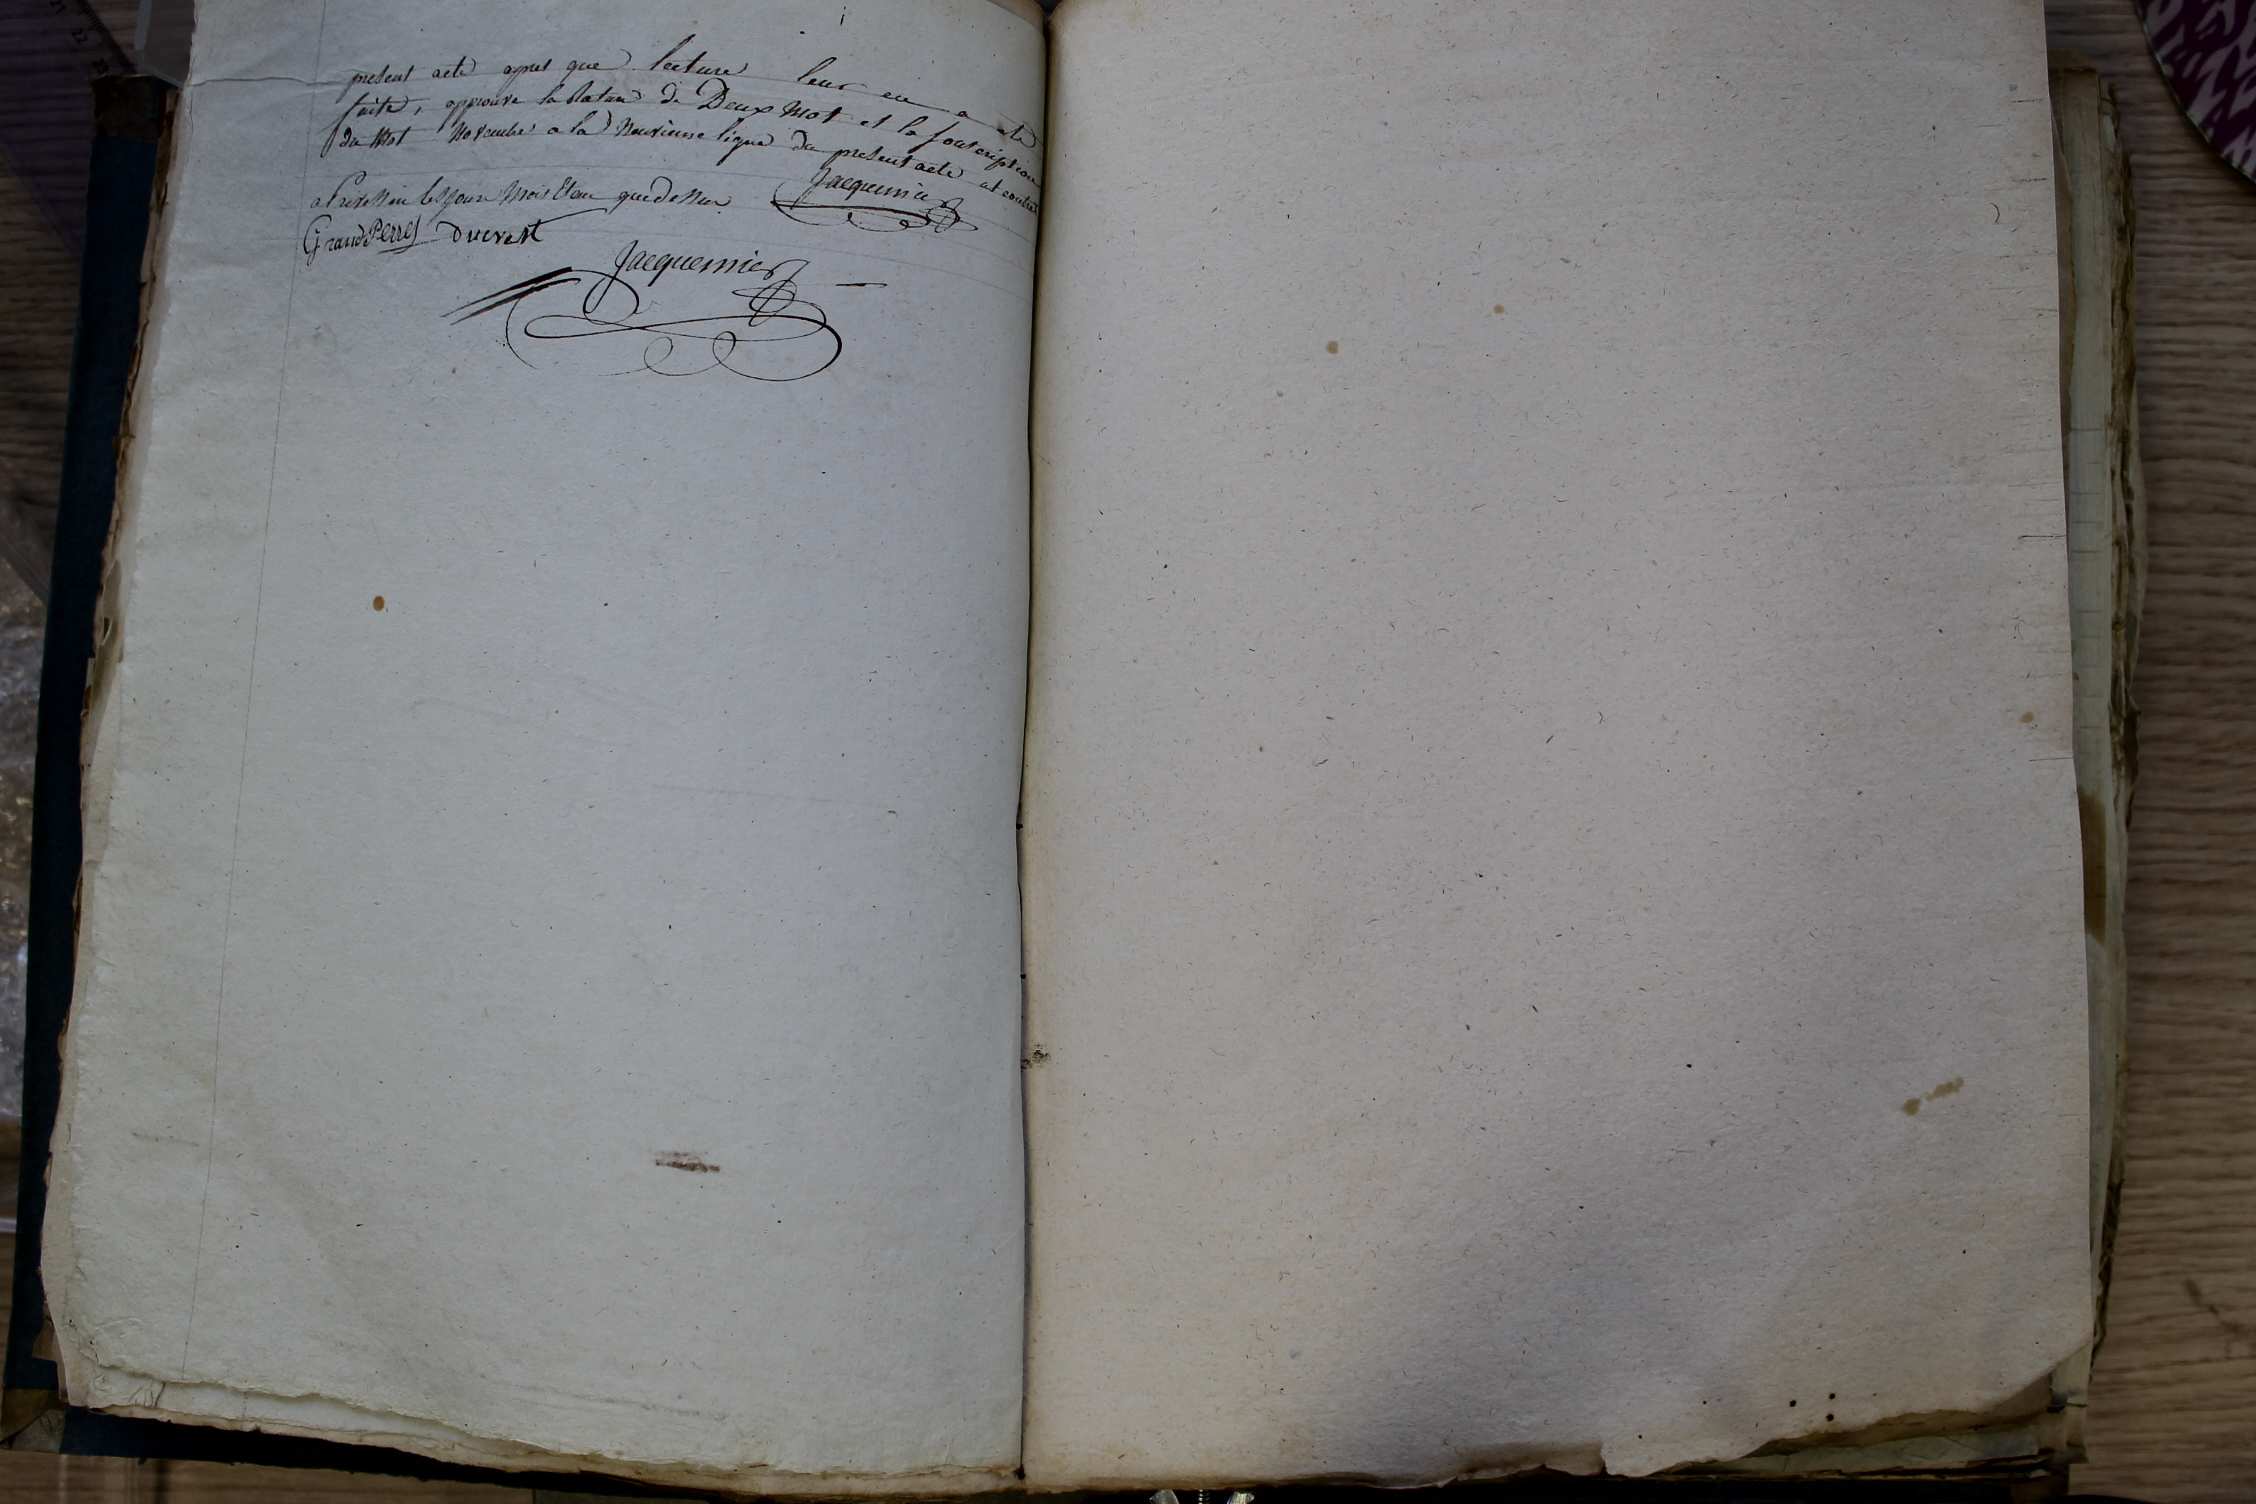 present acte apres que lecture leur en a ete
faite, approuve la rature de Deux Mot et la souscription
du Mot Novembre a la Neuvieme ligne du present acte et
a les Jour Mois Et an que dessus Jacquemier
GrandPerret Ducrest
Jacquemier